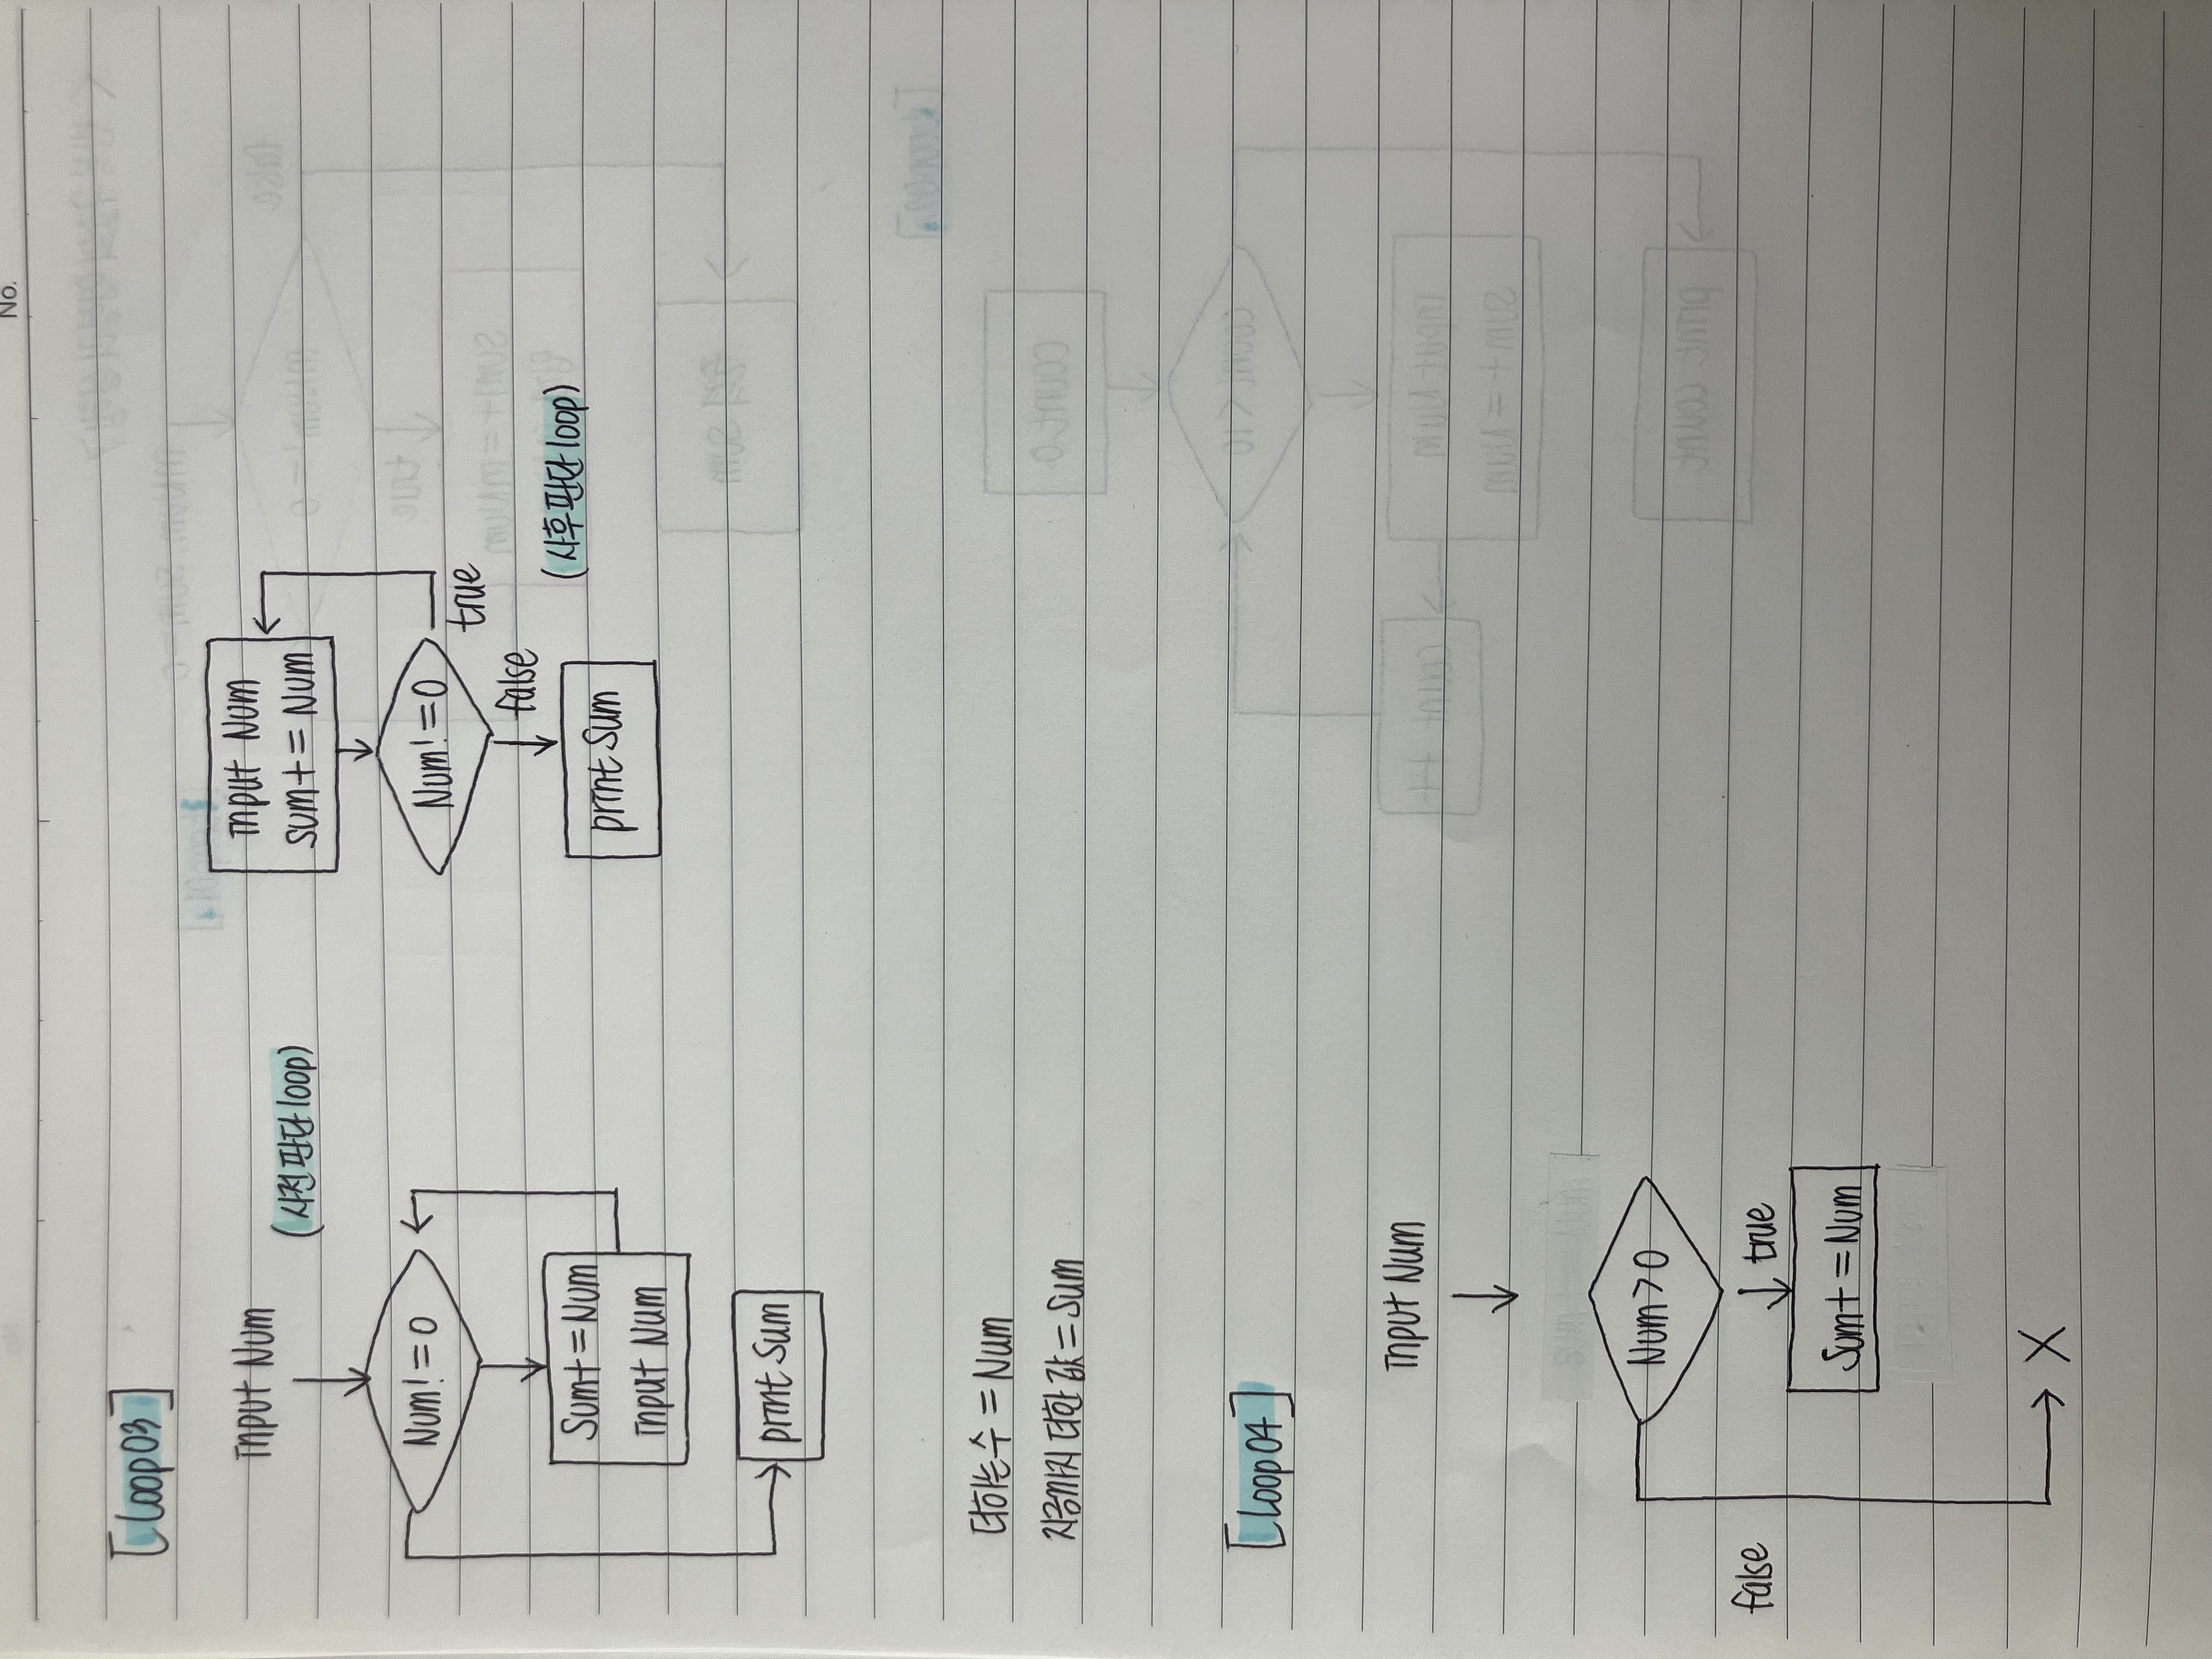 No.
[Loop03]
Input Num
(사전 판단 loop)
Num! = 0
Sum+ = Num
Input Num
print Sum
Input Num
sum+ = Num
Num! = 0
true
false
(사후 판단 loop)
print Sum
더하는 수 = Num
지금까지 더한 값 = Sum
[Loop04]
Input Num
Num > 0
false
true
Sum+ = Num
X